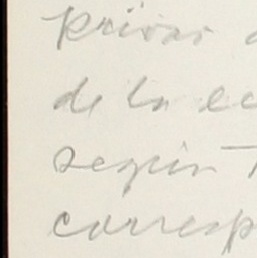 privar
de la ec
según
corresp